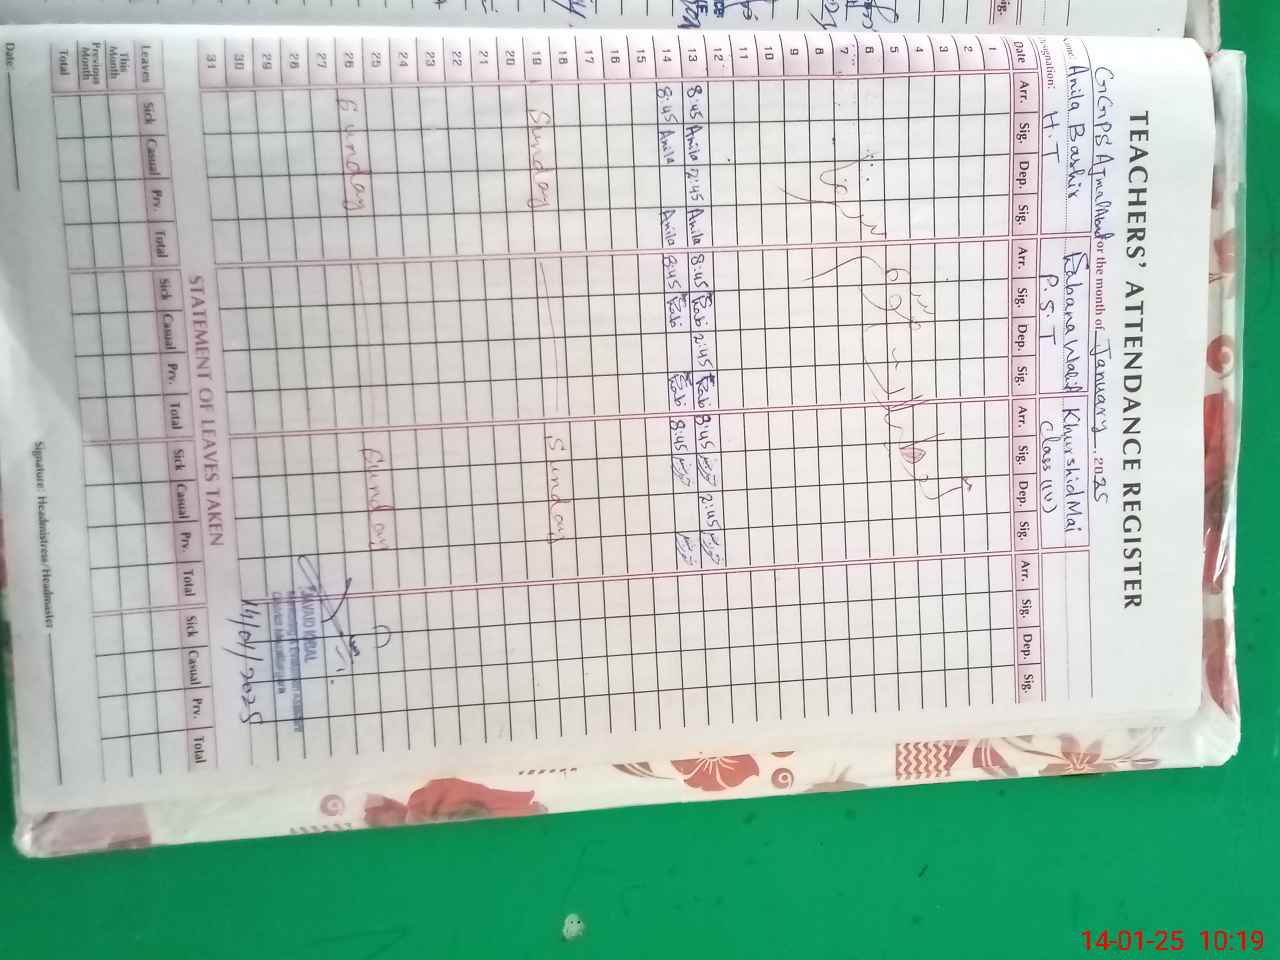 TEACHERS' ATTENDANCE REGISTER
GGPS Ajmal Abad for the month of January 2025
Name: Anila Bashir Rabana Walif Khurshid Mai
Designation: H.T P.S.T Class (IV)
Date Arr. Sig. Dep. Sig. Arr. Sig. Dep. Sig. Arr. Sig. Dep. Sig. Arr. Sig. Dep. Sig.
1
2
3
4
5
6
7
8
9
10
11
12
13 8:45 Anila 2:45 Anila 8:45 Rabi 2:45 Rabi 8:45 2:45
14 8:45 Anila Anila 8:45 Rabi Rabi 8:45
15
16
17
18
19 Sunday Sunday
20
21
22
23
24
25
26 Sunday Sunday
27
28
29
30
31
JAVAID IQBAL
Monitoring & Evaluation Assistant
District Muzaffargarh
14/01/2025
STATEMENT OF LEAVES TAKEN
Leaves Sick Casual Prv. Total Sick Casual Prv. Total Sick Casual Prv. Total Sick Casual Prv. Total
This Month
Previous Month
Total
Date
Signature: Headmistress/Headmaster
14-01-25 10:19